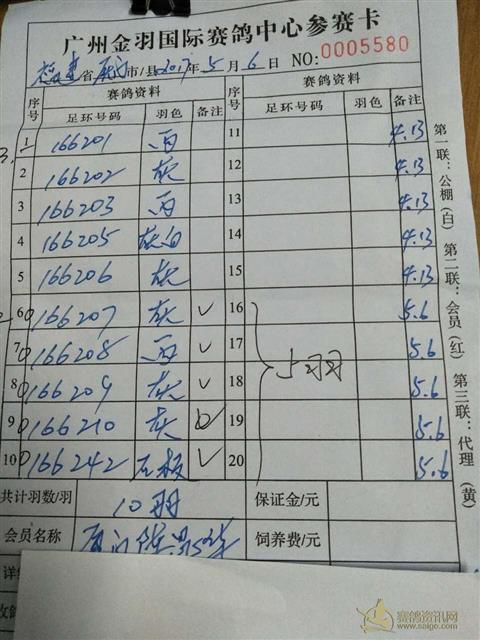 广州金羽国际赛鸽中心参赛卡
福建省厦门市/县2017年5月6日 NO:0005580
序号 赛鸽资料 序号 赛鸽资料
足环号码 羽色 备注 足环号码 羽色 备注
1 166201 雨 11 4.13
2 166202 灰 12 4.13
3 166203 雨 13 4.13
4 166205 灰白 14 4.13
5 166206 灰 15 4.13
6 166207 灰 √ 16 5.6
7 166208 雨 √ 17 5.6
8 166209 灰 √ 18 5.6
9 166210 灰 19 5.6
10 166242 石板 √ 20 5.6
共计羽数/羽 10羽 保证金/元
会员名称 厦门 饲养费/元
第一联：公棚（白） 第二联：会员（红） 第三联：代理（黄）
赛鸽资讯网
www.saige.com